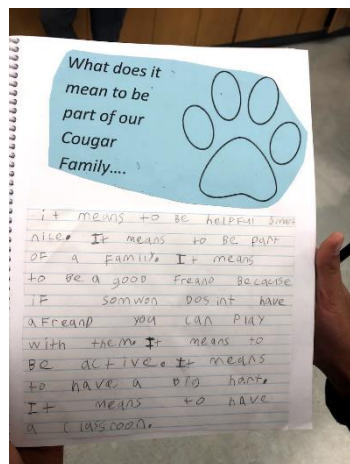 What does it
mean to be
part of our
Cougar
Family....
it means to Be helpful smart
nice. It means to Be part
OF a Family. It means
to Be a good Freand Because
iF somwon Dosint have
a Freand you can Play
with them. It means to
BE active. It means
to have a big hart.
It means to have
a classroon.